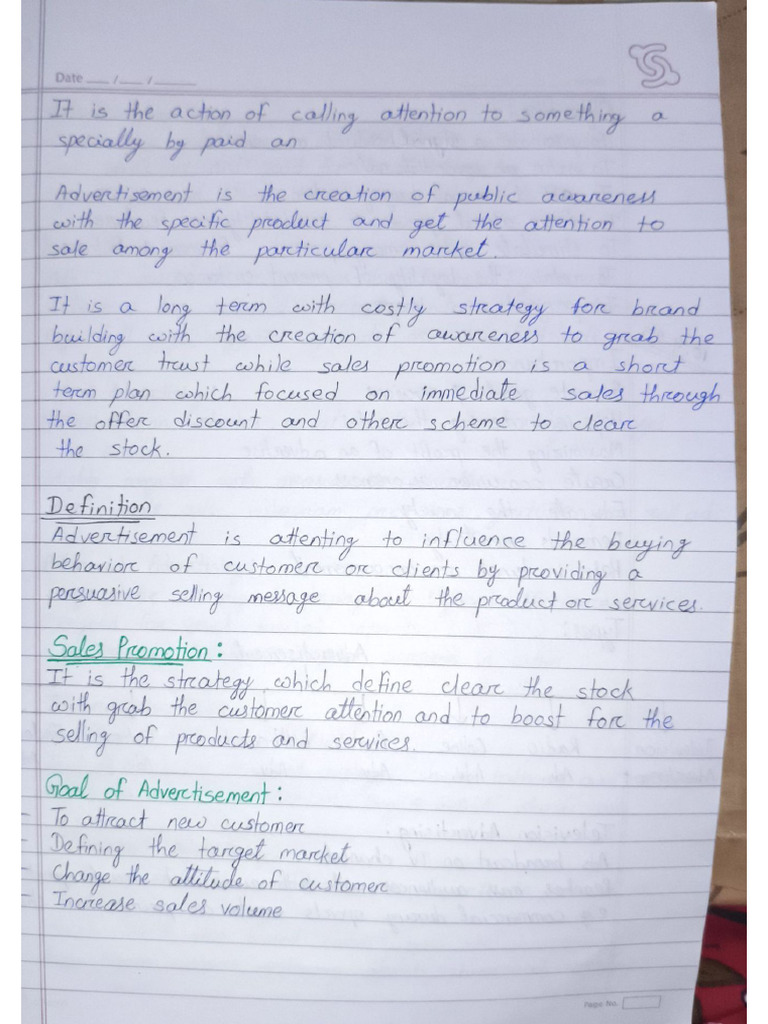 Date ___/___/_____
It is the action of calling attention to something a
specially by paid an
Advertisement is the creation of public awareness
with the specific product and get the attention to
sale among the particular market.
It is a long term with costly strategy for brand
building with the creation of awareness to grab the
customer trust while sales promotion is a short
term plan which focused on immediate sales through
the offer discount and other scheme to clear
the stock.
Definition
Advertisement is attenting to influence the buying
behavior of customer or clients by providing a
persuasive selling message about the product or services.
Sales Promotion:
It is the strategy which define clear the stock
with grab the customer attention and to boost for the
selling of products and services.
Goal of Advertisement:
- To attract new customer
- Defining the target market
- Change the attitude of customer
- Increase sales volume
Page No.